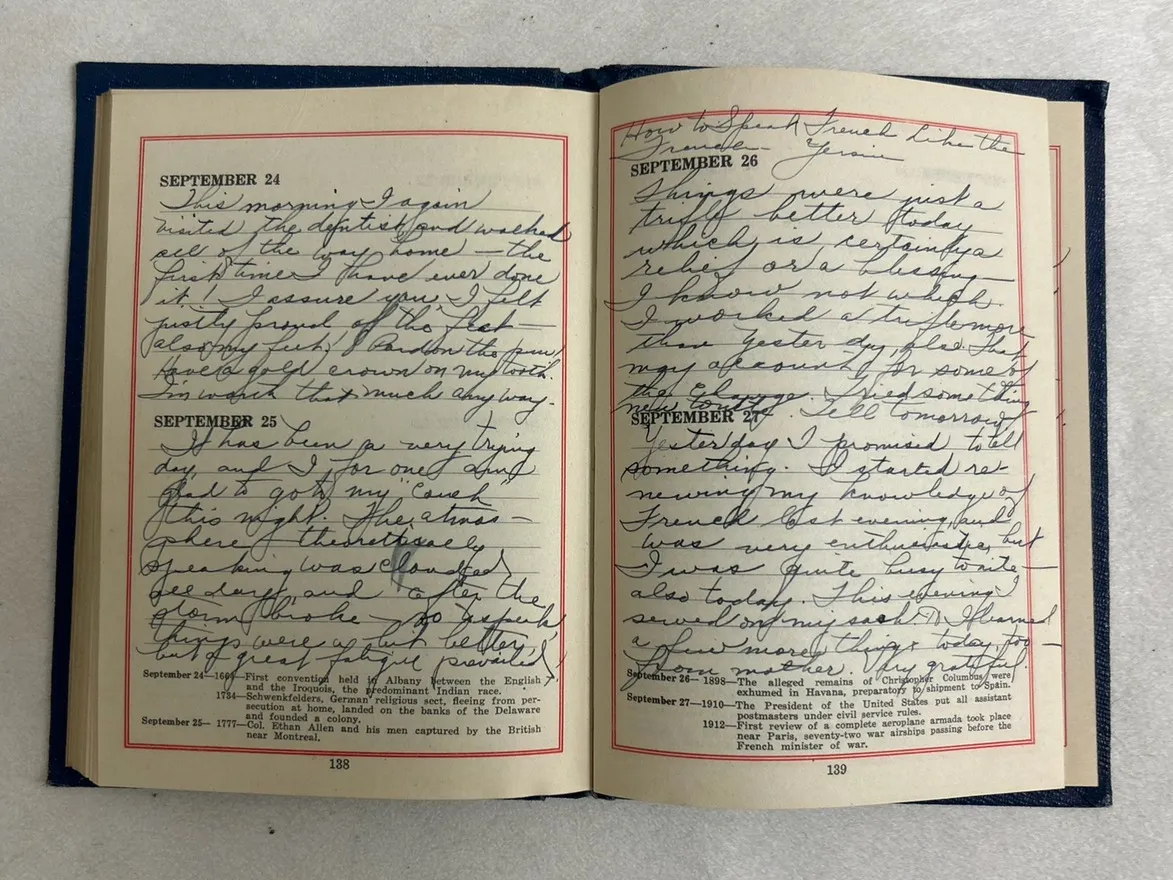 SEPTEMBER 24
This morning I again
visited the dentist and walked
all of the way home — the
first time I have ever done
it! I assure you, I felt
justly proud of the feat —
also my feet! Pardon the pun!
Have a gold crown on my tooth.
I'm worth that much any way.
SEPTEMBER 25
It has been a very trying
day, and I for one am
glad to go to my "couch"
this night. The atmos-
phere theoretically
speaking was clouded
all day, and after the
storm broke — so to speak
things were a bit better,
but a great fatigue prevailed!
September 24—First convention held in Albany between the English
and the Iroquois, the predominant Indian race.
1734—Schwenkfelders, German religious sect, fleeing from per-
secution at home, landed on the banks of the Delaware
and founded a colony.
September 25— 1777—Col. Ethan Allen and his men captured by the British
near Montreal.
138
How to Speak French Like the
French — Yersin
SEPTEMBER 26
Things were just a
trifle better today
which is certainly a
relief or a blessing —
I know not which.
I worked a trifle more
than yesterday, also. That
may account for some of
the change. Tried something
new today. Tell tomorrow
SEPTEMBER 27
Yesterday I promised to tell
something. I started re-
newing my knowledge of
French last evening, and
was very enthusiastic, but
I was quite busy tonite —
also today. This evening I
sewed on my sash. I learned
a few more things today, too —
from mother. Very grateful.
September 26— 1898—The alleged remains of Christopher Columbus were
exhumed in Havana, preparatory to shipment to Spain.
September 27—1910—The President of the United States put all assistant
postmasters under civil service rules.
1912—First review of a complete aeroplane armada took place
near Paris, seventy-two war airships passing before the
French minister of war.
139